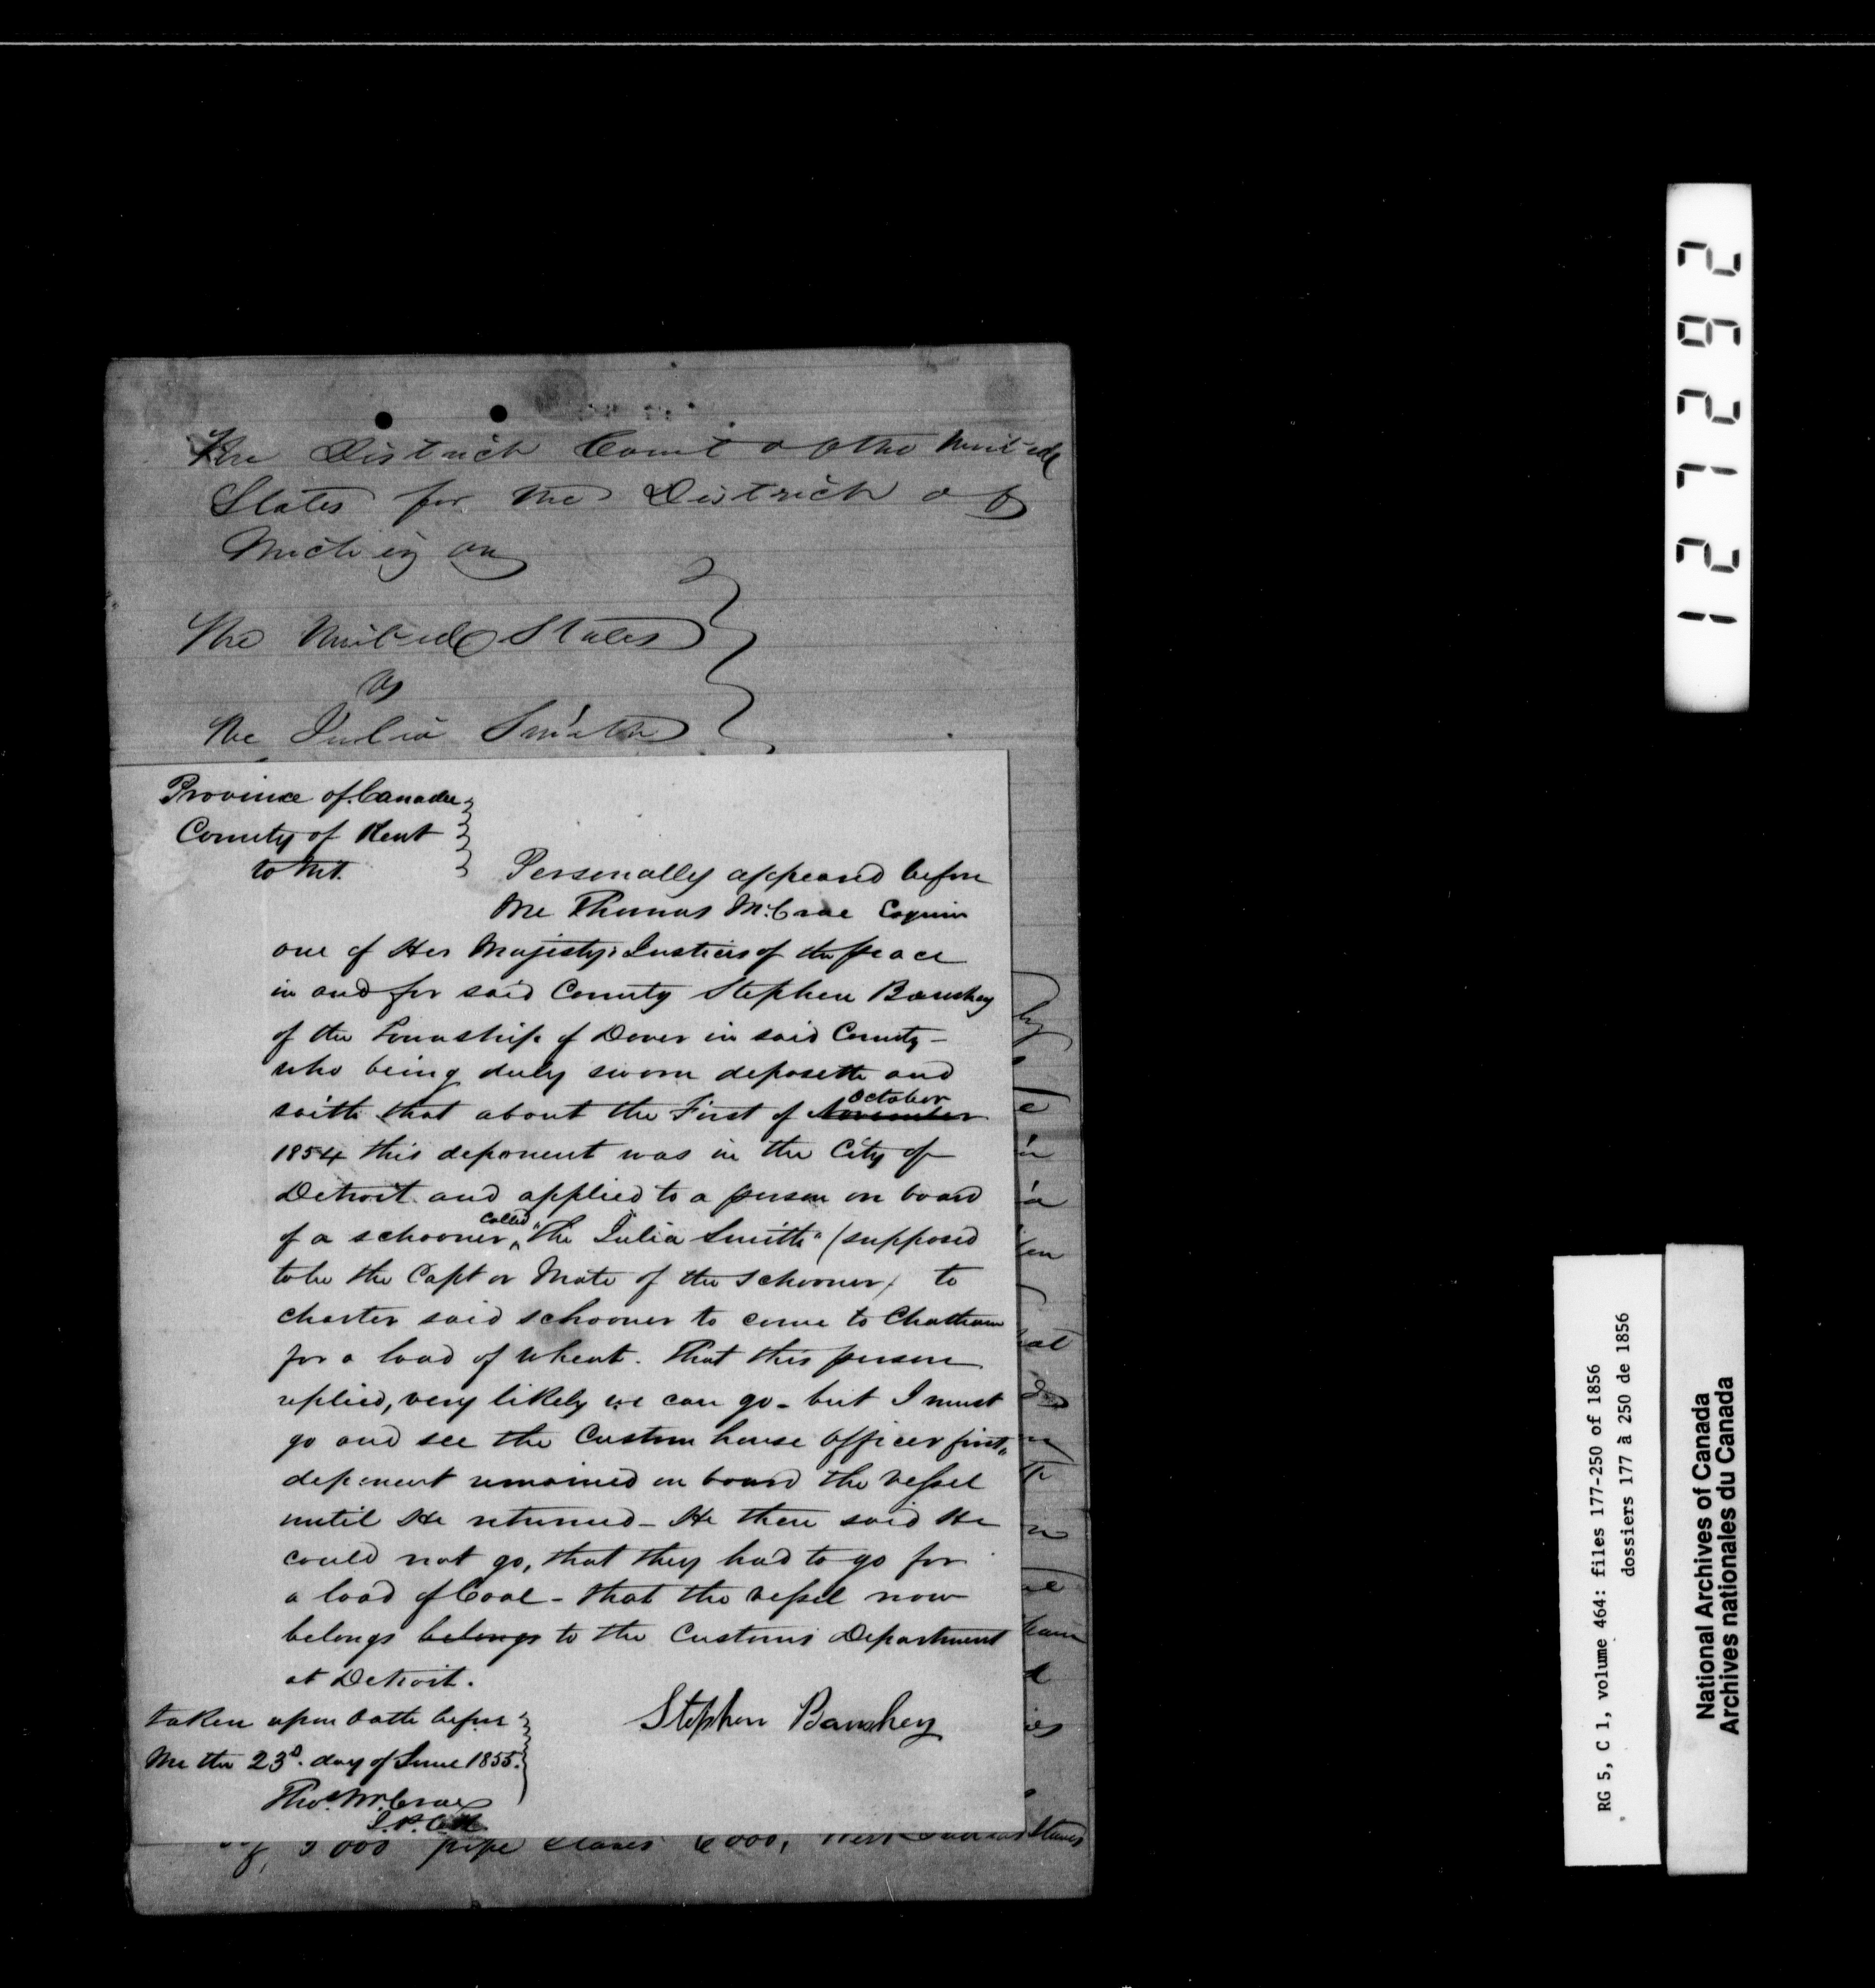 The District Court of the United
States for the District of
Michigan
The United States
vs
The Julia Smith
Province of Canada
County of Kent
to Wit.
Personally appeared before
Me Thomas McCrae Esquire
one of Her Majesty's Justices of the peace
in and for said County Stephen Banskey
of the Township of Dover in said County -
who being duly sworn deposeth and
saith that about the First of November October
1854 this deponent was in the City of
Detroit and applied to a person on board
of a schooner called "The Julia Smith" (supposed
to be the Capt or Mate of the schooner) to
charter said schooner to come to Chatham
for a load of wheat. That this person
replied, very likely we can go - but I must
go and see the Custom house officer first,
deponent remained on board the vessel
until He returned - He then said He
could not go, that they had to go for
a load of Coal - that the vessel now
belongs belongs to the Customs Department
at Detroit.
taken upon Oath before
Me the 23d. day of June 1855.
Stephen Banskey
Thos. McCrae
J.P.
of, 5000 pipe staves 6000,
127292
RG 5, C 1, volume 464: files 177-250 of 1856
dossiers 177 à 250 de 1856
National Archives of Canada
Archives nationales du Canada